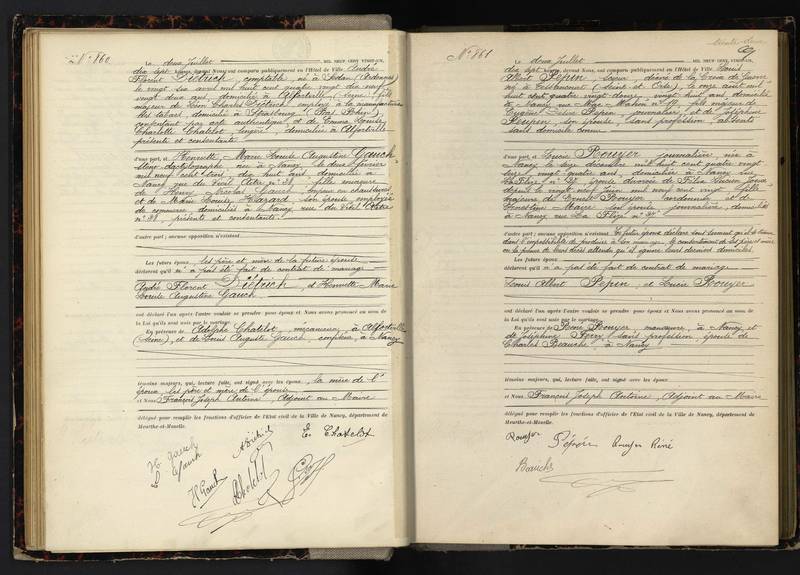 N° 860
Le deux Juillet MIL NEUF CENT VINGT-UN,
dix sept heures, devant Nous ont comparu publiquement en l'Hôtel de Ville André
Florent Dietrich, comptable, né à Sedan (Ardennes)
le vingt six avril mil huit cent quatre vingt dix neuf,
vingt deux ans, domicilié à Alfortville (Seine), fils
majeur de Léon Charles Dietrich employé à la manufacture
des tabacs, domicilié à Strasbourg (Bas Rhin),
consentant par acte authentique et de Emma Louise
Charlotte Chatelot, lingère, domiciliée à Alfortville
présente et consentante.
d'une part, et Henriette Marie Louise Augustine Gauch
sténo-dactylographe née à Nancy le deux février
mil neuf cent trois, dix huit ans, domiciliée à
Nancy rue du n° 38 fille mineure
de Henry Nicolas Gauch,
et de Marie Louise son épouse employée
de commerce, domiciliés à Nancy, rue du
n° 38 présents et consentants.
d'autre part ; aucune opposition n'existant
Les futurs époux, les père et mère de la future épouse
déclarent qu'il n'a pas été fait de contrat de mariage
André Florent Dietrich, et Henriette Marie
Louise Augustine Gauch
ont déclaré l'un après l'autre vouloir se prendre pour époux et Nous avons prononcé au nom de
la Loi qu'ils sont unis par le mariage.
En présence de Adolphe Chatelot, mécanicien, à Alfortville
(Seine), et de Louis Auguste Gauch, à Nancy
témoins majeurs, qui, lecture faite, ont signé avec les époux, la mère de l'
époux, les père et mère de l'épouse
et Nous François Joseph Antoine, Adjoint au Maire
délégué pour remplir les fonctions d'officier de l'Etat civil de la Ville de Nancy, département de
Meurthe-et-Moselle.
H. Gauch
E. Chatelot
N° 861
Le deux Juillet MIL NEUF CENT VINGT-UN,
dix sept heures, devant Nous, ont comparu publiquement en l'Hôtel de Ville Louis
Albert Pépen, décoré de la Croix de Guerre
né à (Seine et Oise), le onze août mil
huit cent quatre vingt douze, vingt huit ans, domicilié
à Nancy rue Mac-Mahon n° 19, fils majeur de
Eugène Pépen journalier, et de Joséphine
son épouse, sans profession, absents
sans domicile connu
d'une part, et Lucie Rouyer journalière, née à
Nancy le seize décembre mil huit cent quatre vingt
seize, vingt quatre ans, domiciliée à Nancy rue
n° 34, épouse divorcée de
depuis le vingt Juin mil neuf cent vingt, fille
majeure de Ernest Rouyer cordonnier et de
Marie son épouse journalière, domiciliés
à Nancy rue n° 34
d'autre part ; aucune opposition n'existant
dans l'impossibilité de produire à son mariage, le consentement de ses père et mère
ou la preuve de leur décès attendu qu'il ignore leurs derniers domiciles.
Les futurs époux
déclarent qu'il n'a pas été fait de contrat de mariage
Louis Albert Pépen et Lucie Rouyer
ont déclaré l'un après l'autre vouloir se prendre pour époux et Nous avons prononcé au nom de
la Loi qu'ils sont unis par le mariage.
En présence de René Rouyer manœuvre, à Nancy et
de Joséphine sans profession, épouse de
Charles à Nancy
témoins majeurs, qui, lecture faite, ont signé avec les époux
et Nous François Joseph Antoine, Adjoint au Maire
délégué pour remplir les fonctions d'officier de l'Etat civil de la Ville de Nancy, département de
Meurthe-et-Moselle.
Rouyer Pépen Rouyer René